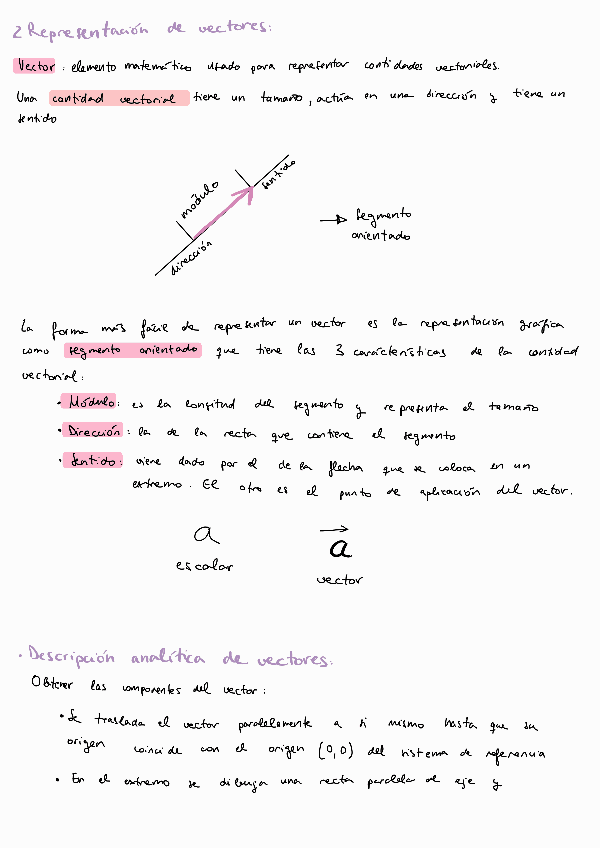 2 Representación de vectores:
Vector: elemento matemático usado para representar cantidades vectoriales.
Una cantidad vectorial tiene un tamaño, actúa en una dirección y tiene un
sentido
módulo
sentido
dirección
segmento
orientado
La forma más fácil de representar un vector es la representación gráfica
como segmento orientado que tiene las 3 características de la cantidad
vectorial:
· Módulo: es la longitud del segmento y representa el tamaño
· Dirección: la de la recta que contiene el segmento
· Sentido: viene dado por el de la flecha que se coloca en un
extremo. El otro es el punto de aplicación del vector.
a
a
escalar
vector
· Descripción analítica de vectores:
Obtener las componentes del vector:
· Se traslada el vector paralelamente a si mismo hasta que su
origen coincide con el origen (0,0) del sistema de referencia
· En el extremo se dibuja una recta paralela al eje y